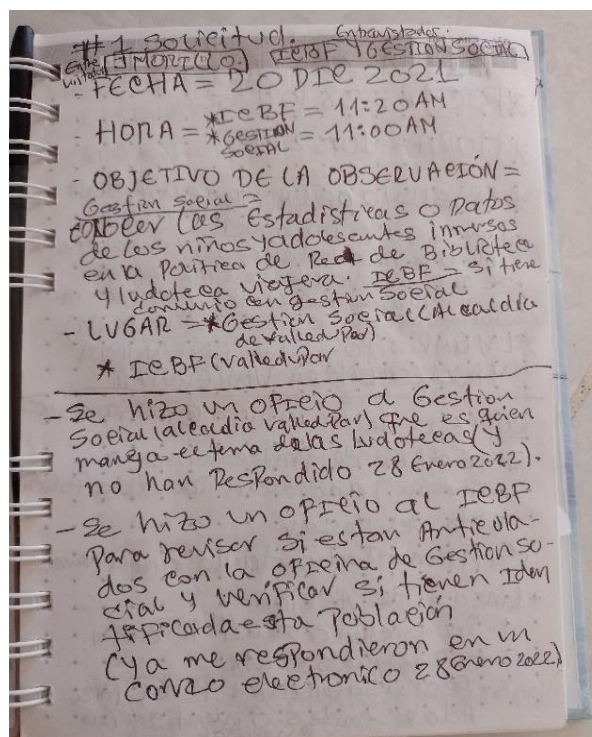 #1 Solicitud. Entrevistados:
EMORICLO. IEBF Y GESTION SOCIAL
- FECHA = 20 DIC 2021
- HORA = *IEBF = 11:20 AM
*GESTION SOCIAL = 11:00 AM
- OBJETIVO DE LA OBSERVACIÓN =
Gestion Social =
conocer las Estadisticas o Datos
de los niños y adolescentes inmersos
en la Politica de Red de Biblioteca
y ludoteca viajera. IEBF = si tiene
convenio con gestion Social
- LUGAR = *Gestion Social (Alcaldia
de valledupar)
* IEBF (valledupar
- Se hizo un oficio a Gestion
Social (alcaldia valledupar) que es quien
maneja el tema de las ludotecas (y
no han Respondido 28 Enero 2022).
- Se hizo un oficio al IEBF
Para revisar si estan Articula-
dos con la oficina de Gestion so-
cial y verificar si tienen Iden
tificada esta Población
(ya me respondieron en un
correo electronico 28 enero 2022)